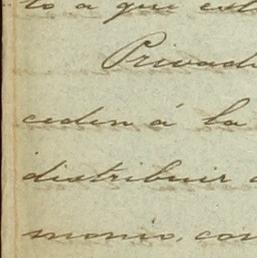 to a que est
Privad
ceden á la
distribuir
monio, con